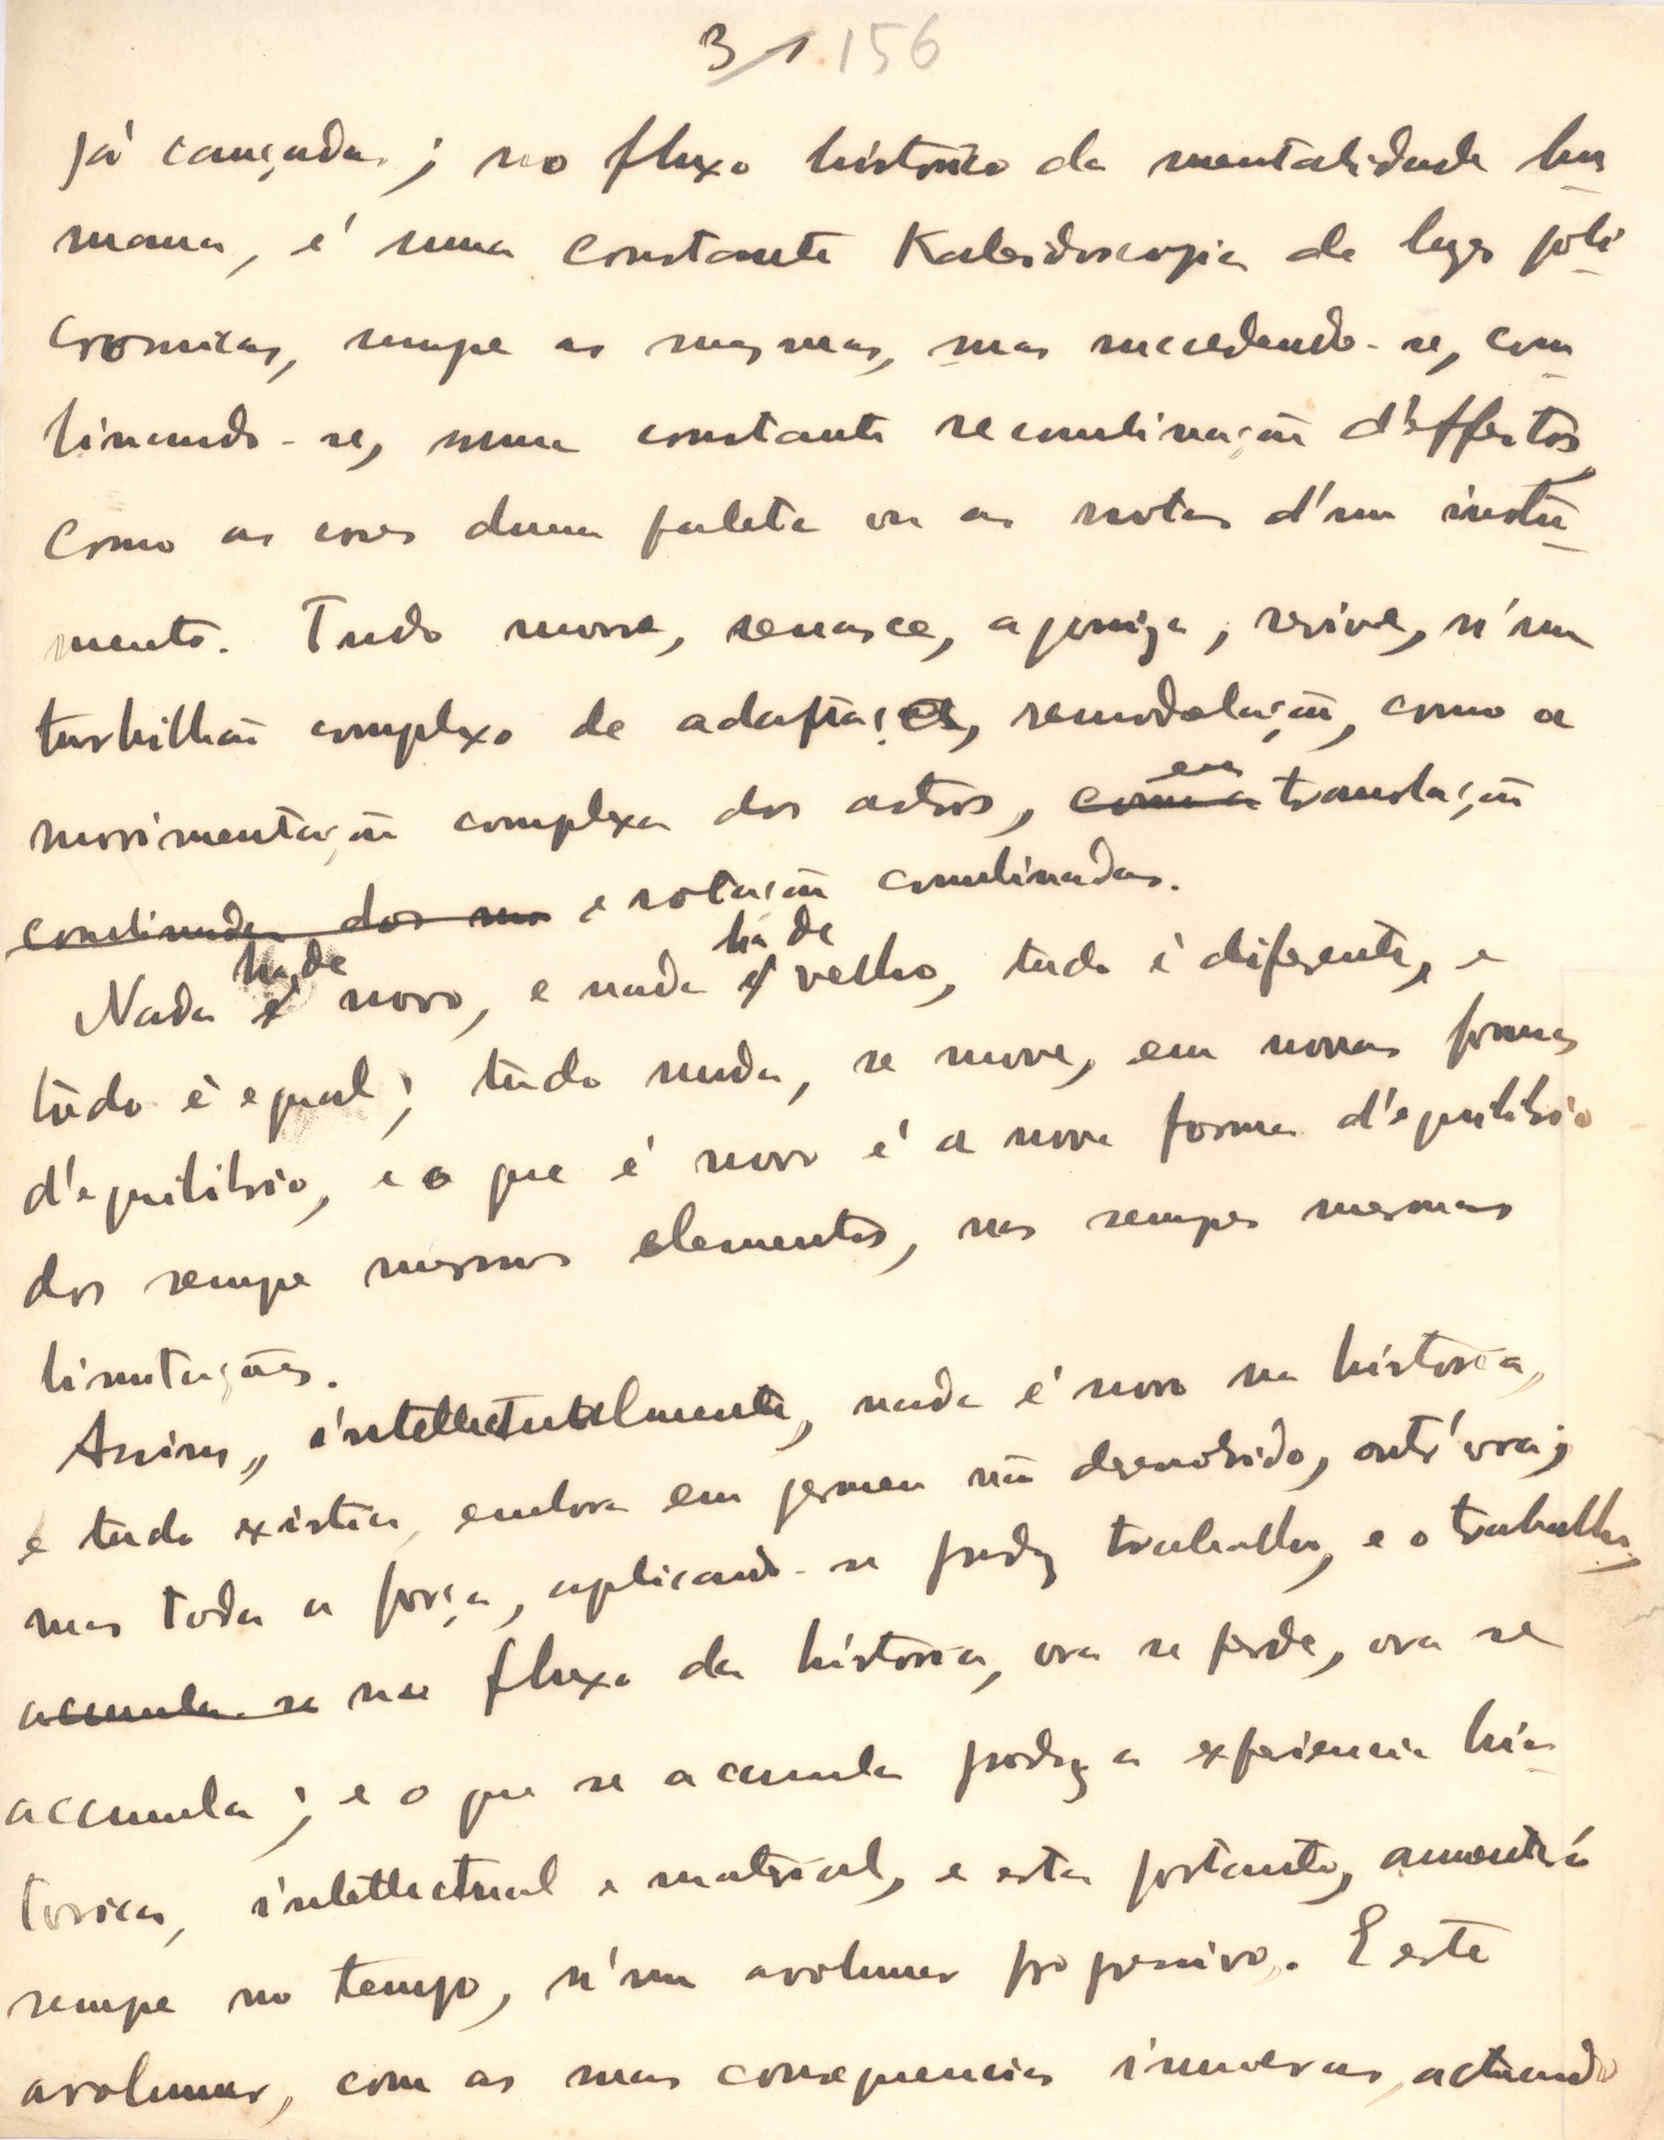 3/1 156
já cançadas; no fluxo historico da mentalidade hu
mana, é uma constante Kaleidoscopia de luzes poli
cromicas, sempre as mesmas, mas succedendo-se, com
binando-se, numa constante recombinação d'effeitos
como as cores duma paleta ou as notas d'um instru
mento. Tudo morre, renasce, agoniza, revive, n'um
turbilhão complexo de adaptações, remodelação, como a
movimentação complexa dos astros, com a em translação
combinada dos e rotação combinadas.
Nada é ha de novo, e nada é há de velho, tudo é diferente, e
tudo é egual; tudo muda, se move, em novas formas
d'equilibrio, e o que é novo é a nova forma d'equilibrio
dos sempre mesmos elementos, nas sempre mesmas
limitações.
Assim, intellectualmente, nada é novo na historia,
e tudo existia, embora em germen não desenvolvido, outr'ora;
mas toda a força, aplicando-se produz trabalho, e o trabalho,
acumula-se no fluxo da historia, ora se perde, ora se
accumula; e o que se acumula produz a experiencia his
torica, intellectual e material, e esta portanto, aumentará
sempre no tempo, n'um avolumar progressivo. E este
avolumar, com as suas consequencias inumeras, actuando